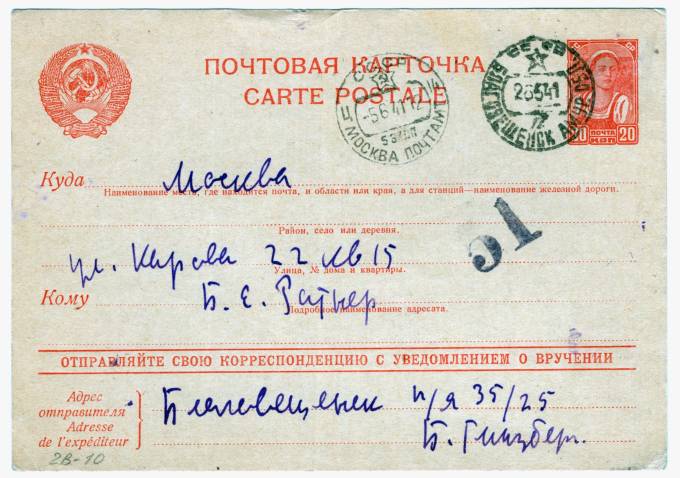 ПОЧТОВАЯ КАРТОЧКА
CARTE POSTALE
СССР
МОСКВА ПОЧТАМТ
-5 6 41 12
БЛАГОВЕЩЕНСК АМУР. ОБЛ
26 5 41
ПОЧТА
20 КОП 20
Куда Москва
Наименование места, где находится почта, и области или края, а для станций—наименование железной дороги.
Район, село или деревня.
51
ул. Кирова 22 кв 15
Улица, № дома и квартиры.
Кому Б. Е. Ратнер
Подробное наименование адресата.
ОТПРАВЛЯЙТЕ СВОЮ КОРРЕСПОНДЕНЦИЮ С УВЕДОМЛЕНИЕМ О ВРУЧЕНИИ
Адрес
отправителя
Adresse
de l'expéditeur
Благовещенск п/я 35/25
Б. Гинзберг.
2В-10